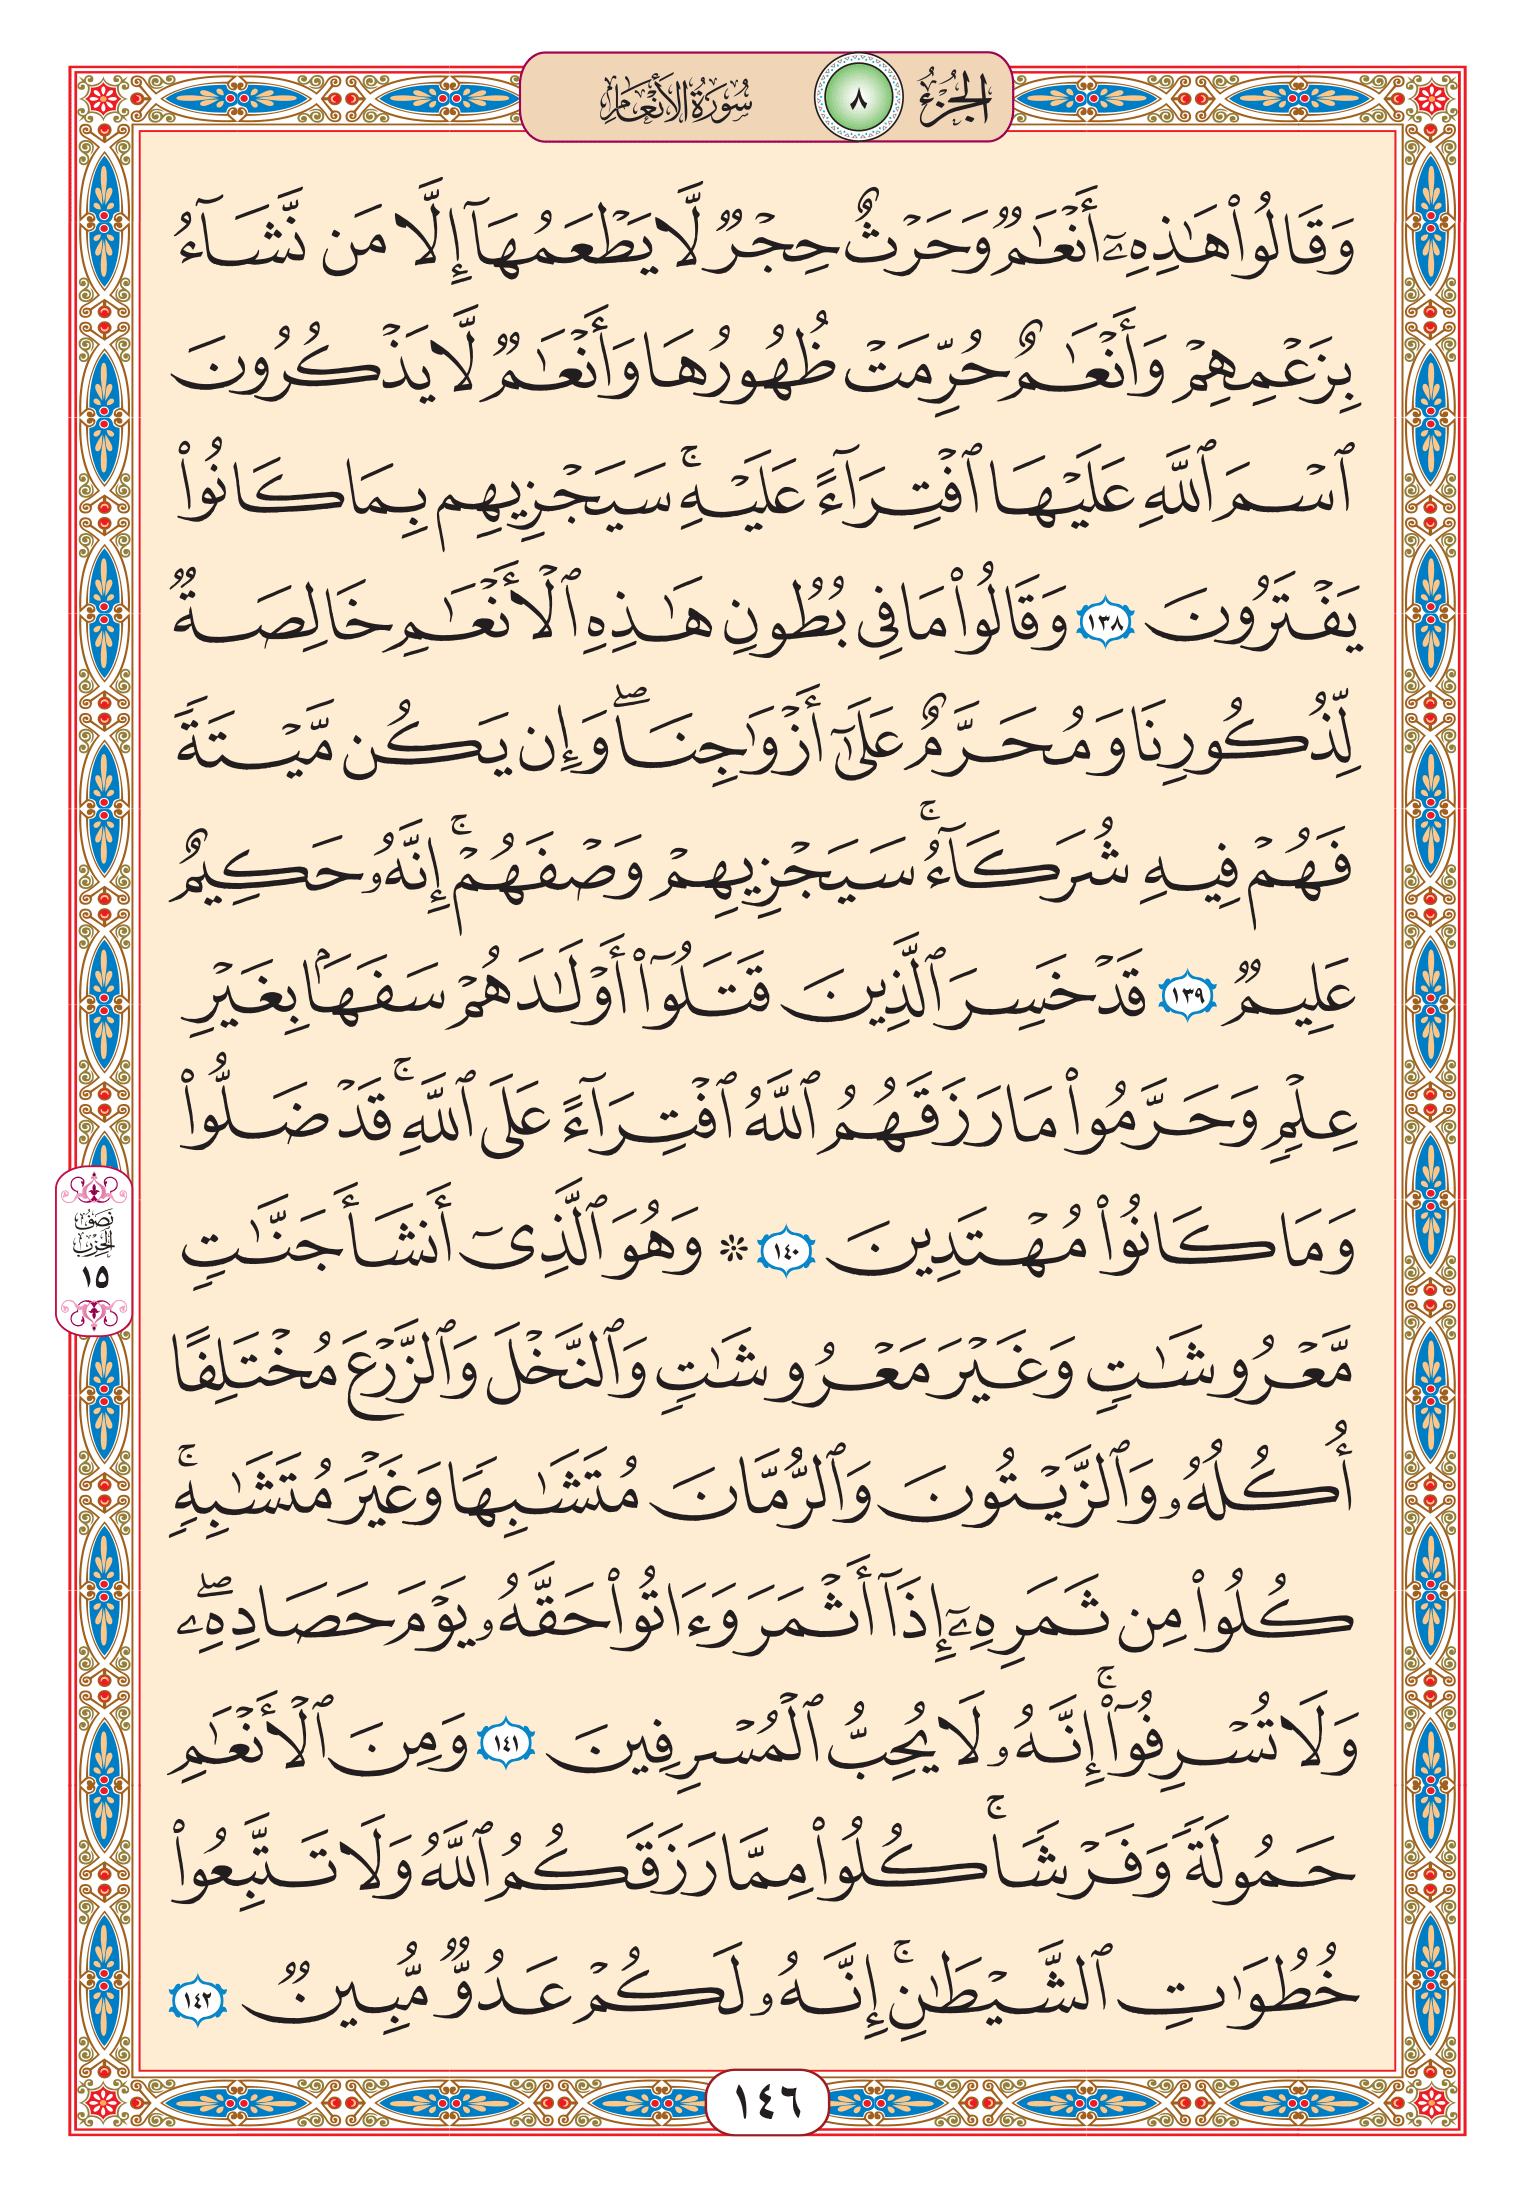 الجزء ٨ سورة الأنعام
وَقَالُوا۟ هَٰذِهِۦٓ أَنْعَٰمٌۭ وَحَرْثٌ حِجْرٌۭ لَّا يَطْعَمُهَآ إِلَّا مَن نَّشَآءُ
بِزَعْمِهِمْ وَأَنْعَٰمٌ حُرِّمَتْ ظُهُورُهَا وَأَنْعَٰمٌۭ لَّا يَذْكُرُونَ
ٱسْمَ ٱللَّهِ عَلَيْهَا ٱفْتِرَآءً عَلَيْهِ ۚ سَيَجْزِيهِم بِمَا كَانُوا۟
يَفْتَرُونَ ١٣٨ وَقَالُوا۟ مَا فِى بُطُونِ هَٰذِهِ ٱلْأَنْعَٰمِ خَالِصَةٌۭ
لِّذُكُورِنَا وَمُحَرَّمٌ عَلَىٰٓ أَزْوَٰجِنَا ۖ وَإِن يَكُن مَّيْتَةًۭ
فَهُمْ فِيهِ شُرَكَآءُ ۚ سَيَجْزِيهِمْ وَصْفَهُمْ ۚ إِنَّهُۥ حَكِيمٌ
عَلِيمٌۭ ١٣٩ قَدْ خَسِرَ ٱلَّذِينَ قَتَلُوٓا۟ أَوْلَٰدَهُمْ سَفَهًۢا بِغَيْرِ
عِلْمٍۢ وَحَرَّمُوا۟ مَا رَزَقَهُمُ ٱللَّهُ ٱفْتِرَآءً عَلَى ٱللَّهِ ۚ قَدْ ضَلُّوا۟
وَمَا كَانُوا۟ مُهْتَدِينَ ١٤٠ ۞ وَهُوَ ٱلَّذِىٓ أَنشَأَ جَنَّٰتٍۢ
مَّعْرُوشَٰتٍۢ وَغَيْرَ مَعْرُوشَٰتٍۢ وَٱلنَّخْلَ وَٱلزَّرْعَ مُخْتَلِفًا
أُكُلُهُۥ وَٱلزَّيْتُونَ وَٱلرُّمَّانَ مُتَشَٰبِهًۭا وَغَيْرَ مُتَشَٰبِهٍۢ ۚ
كُلُوا۟ مِن ثَمَرِهِۦٓ إِذَآ أَثْمَرَ وَءَاتُوا۟ حَقَّهُۥ يَوْمَ حَصَادِهِۦ ۖ
وَلَا تُسْرِفُوٓا۟ ۚ إِنَّهُۥ لَا يُحِبُّ ٱلْمُسْرِفِينَ ١٤١ وَمِنَ ٱلْأَنْعَٰمِ
حَمُولَةًۭ وَفَرْشًۭا ۚ كُلُوا۟ مِمَّا رَزَقَكُمُ ٱللَّهُ وَلَا تَتَّبِعُوا۟
خُطُوَٰتِ ٱلشَّيْطَٰنِ ۚ إِنَّهُۥ لَكُمْ عَدُوٌّۭ مُّبِينٌۭ ١٤٢
نصف
الحزب
١٥
١٤٦